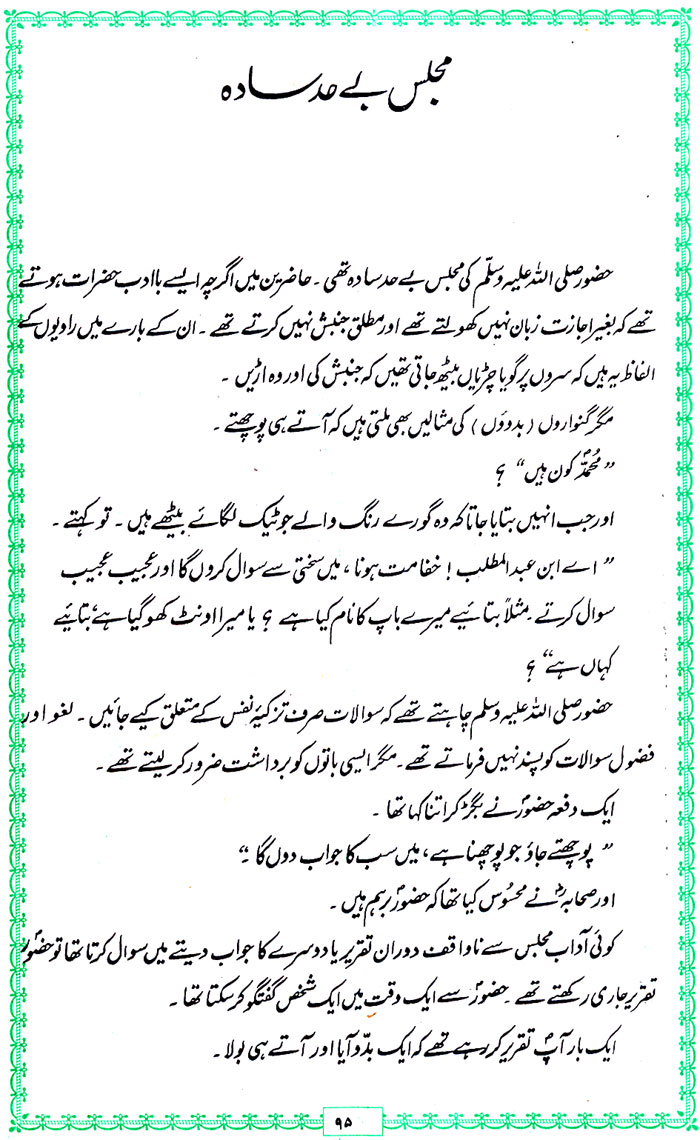 مجلس بے حد سادہ
حضور صلی اللہ علیہ وسلّم کی مجلس بے حد سادہ تھی ۔ حاضرین میں اگرچہ ایسے باادب حضرات ہوتے
تھے کہ بغیر اجازت زبان نہیں کھولتے تھے اور مطلق جنبش نہیں کرتے تھے ۔ ان کے بارے میں راویوں کے
الفاظ یہ ہیں کہ سروں پر گویا چڑیاں بیٹھ جاتی تھیں کہ جنبش کی اور وہ اڑیں ۔
مگر گنواروں (بدوؤں) کی مثالیں بھی ملتی ہیں کہ آتے ہی پوچھتے ۔
” مُحمّدؐ کون ہیں “ ؟
اور جب انہیں بتایا جاتا کہ وہ گورے رنگ والے جو ٹیک لگائے بیٹھے ہیں ۔ تو کہتے ۔
” اے ابن عبدالمطلب ! خفا مت ہونا ، میں سختی سے سوال کروں گا اور عجیب عجیب
سوال کرتے ۔ مثلاً بتائیے میرے باپ کا نام کیا ہے ؟ یا میرا اونٹ کھو گیا ہے ، بتائیے
کہاں ہے “ ؟
حضور صلی اللہ علیہ وسلم چاہتے تھے کہ سوالات صرف تزکیۂ نفس کے متعلق کیے جائیں ۔ لغو اور
فضول سوالات کو پسند نہیں فرماتے تھے ۔ مگر ایسی باتوں کو برداشت ضرور کر لیتے تھے ۔
ایک دفعہ حضورؐ نے بگڑ کر اتنا کہا تھا ۔
” پوچھتے جاؤ جو پوچھنا ہے ، میں سب کا جواب دوں گا ۔“
اور صحابہؓ نے محسُوس کیا تھا کہ حضورؐ برہم ہیں ۔
کوئی آداب مجلس سے ناواقف دوران تقریر یا دوسرے کا جواب دیتے میں سوال کرتا تھا تو حضورؐ
تقریر جاری رکھتے تھے ۔ حضورؐ سے ایک وقت میں ایک شخص گفتگو کر سکتا تھا ۔
ایک بار آپؐ تقریر کر رہے تھے کہ ایک بدّو آیا اور آتے ہی بولا ۔
۹۵